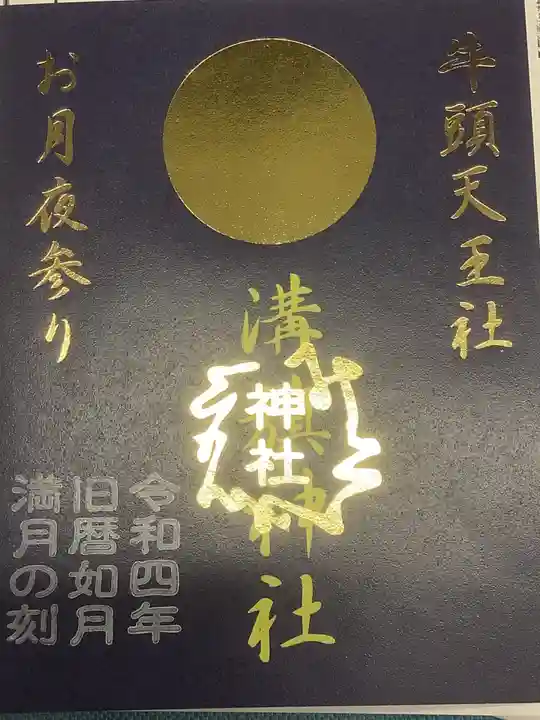 牛頭天王社
溝旗神社
神社
お月夜参り
令和四年
旧暦如月
満月の刻